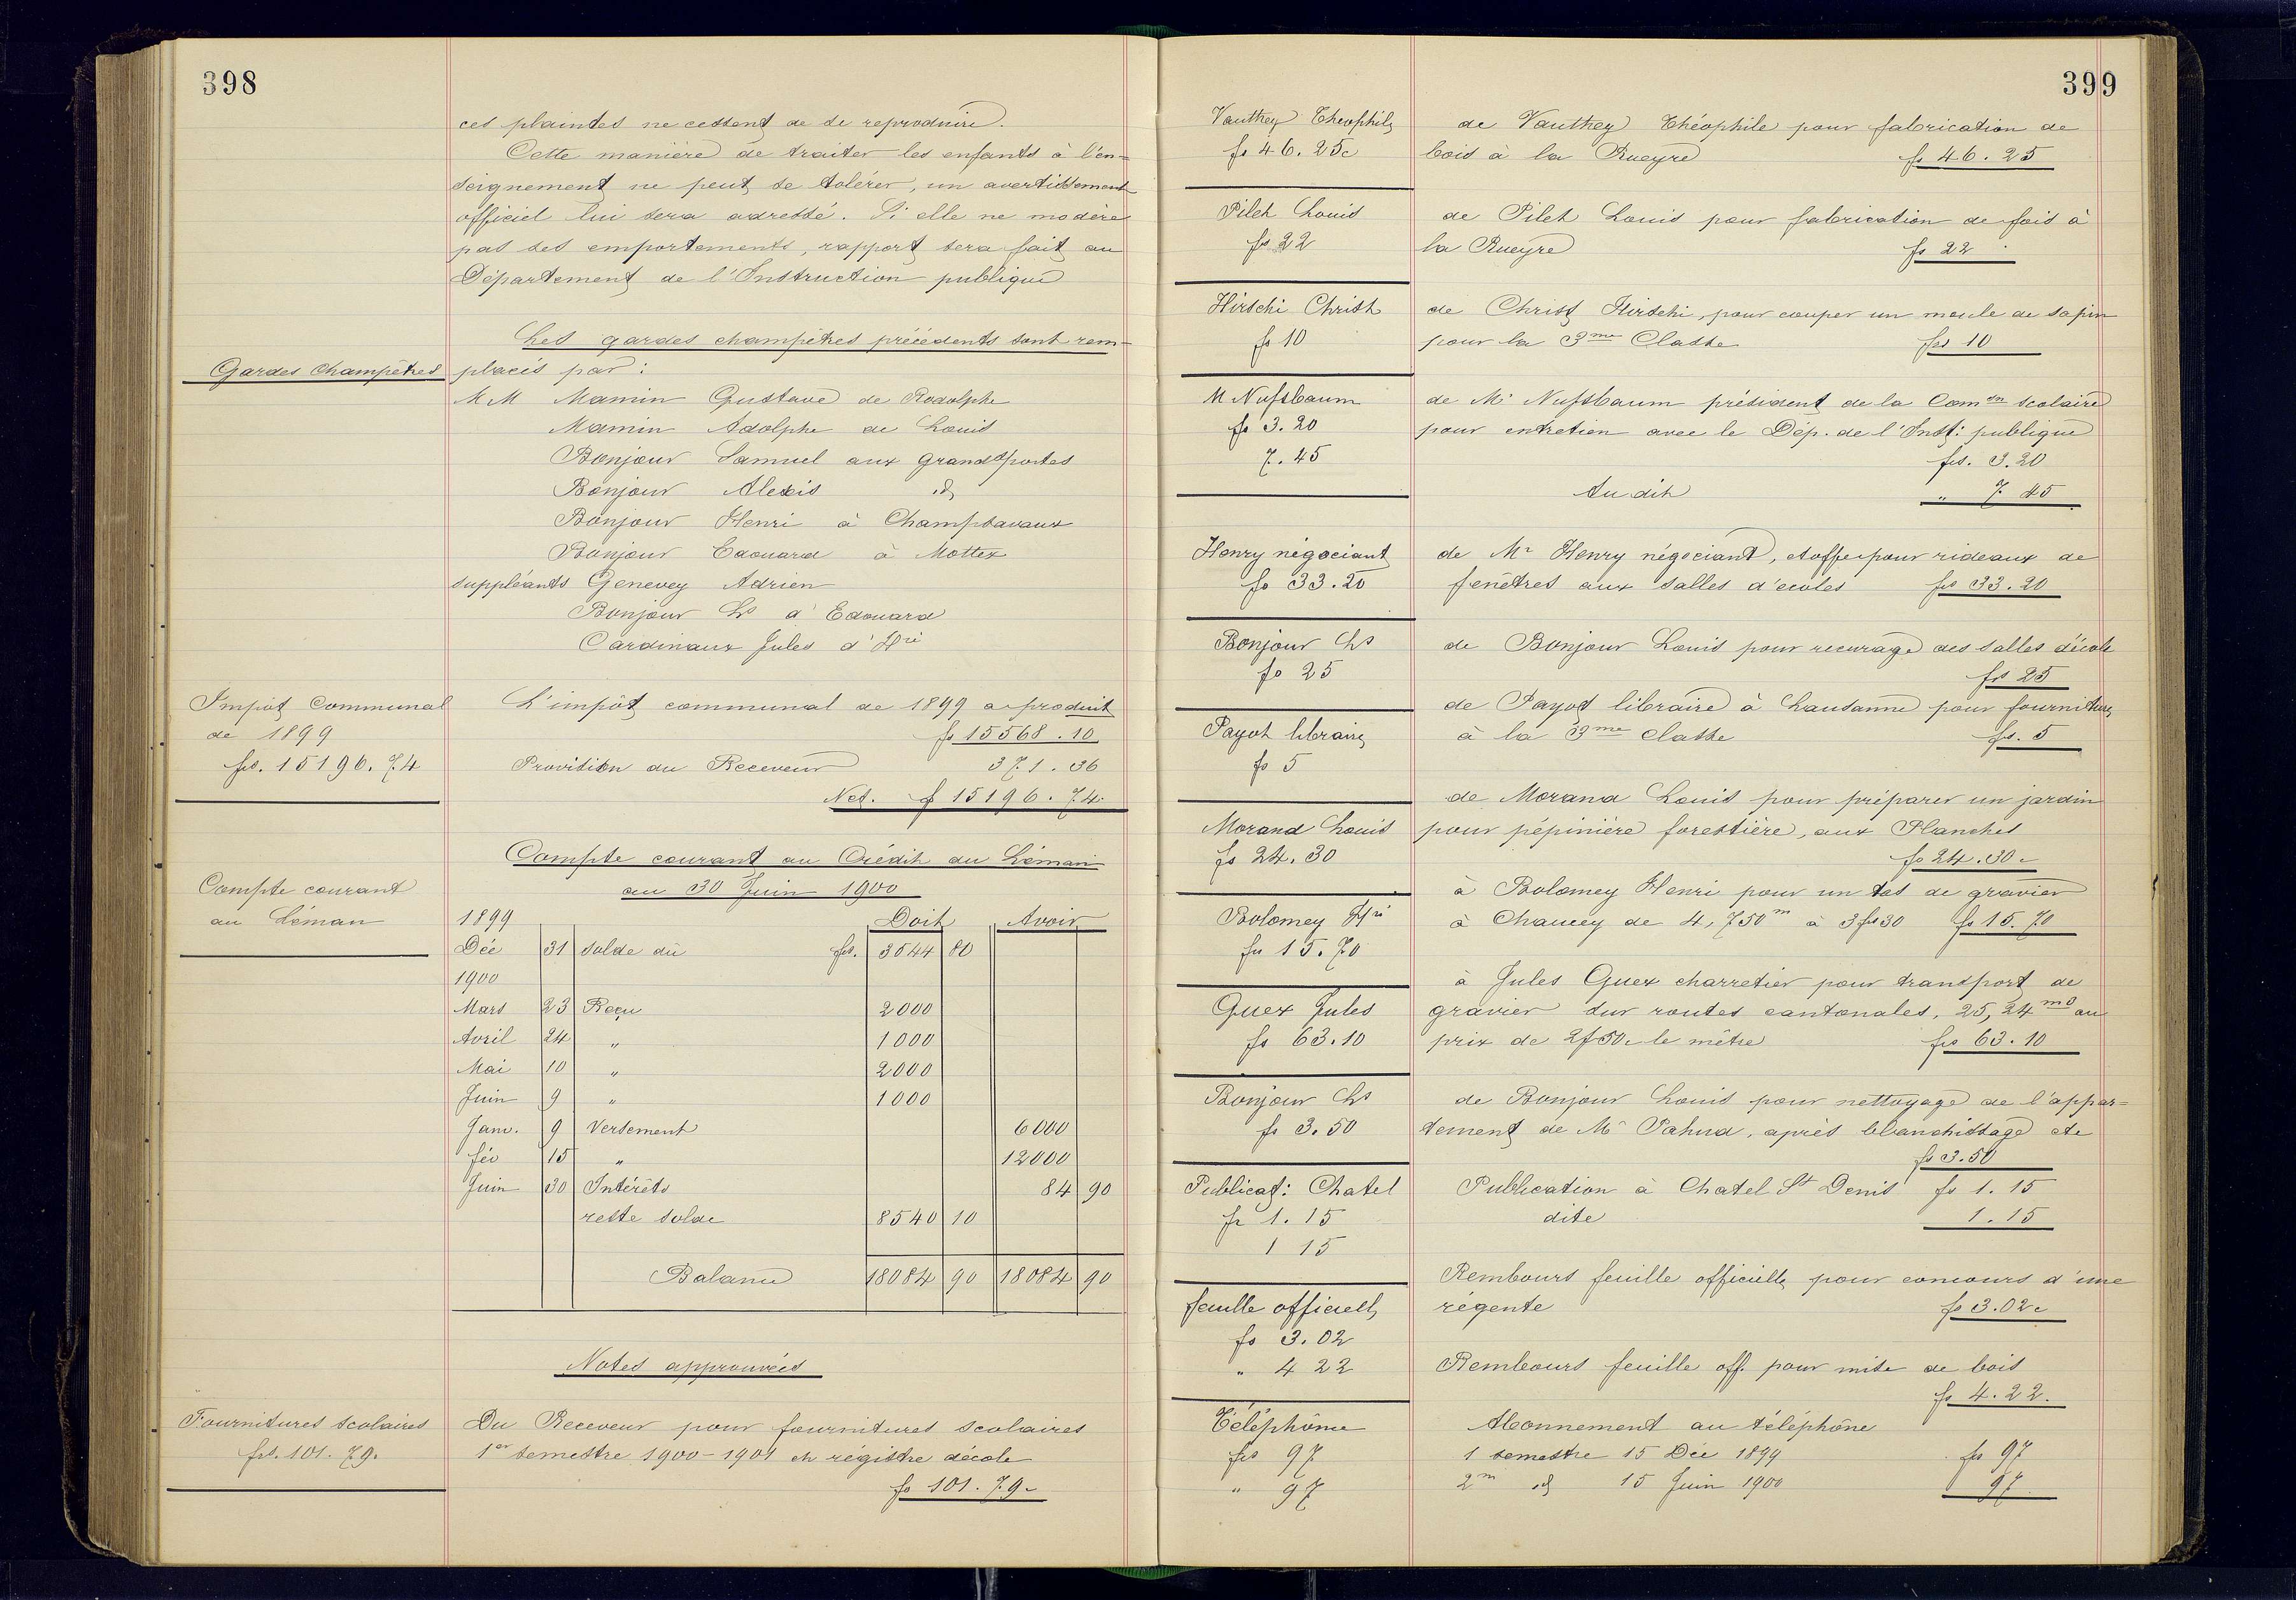 398
ces plaintes ne cessent de se reproduire.
Cette manière de traiter les enfants à l'en=
seignement ne peut se tolérer, un avertissement
officiel lui sera adressé. Si elle ne modère
pas ses emportements, rapport sera fait au
Département de l'Instruction publique
Les gardes champêtres précédents sont rem-
Gardes Champêtres placés par :
MM Mamin Gustave de Rodolphe
Mamin Adolphe de Louis
Bonjour Samuel aux Grandsportes
Bonjour Alexis id
Bonjour Henri à Champsavaux
Bonjour Edouard à Mottex
suppléants Genevey Adrien
Bonjour Ls d'Edouard
Cardinaux Jules d'Hri
Impôt Communal L'impôt communal de 1899 a produit
de 1899 fs 15568.10
frs. 15196.74 Provision du Receveur 371.36
Net. f 15196.74
Compte courant au Crédit du Léman
Compte courant au 30 Juin 1900
au Léman 1899 Doit Avoir
Déc 31 solde dû frs. 3544 80
1900
Mars 23 Reçu 2000
Avril 24 " 1000
Mai 10 " 2000
Juin 9 " 1000
Janv. 9 Versement 6000
fév 15 " 12000
Juin 30 Intérêts 84 90
reste solde 8540 10
Balance 18084 90 18084 90
Notes approuvées
Fournitures scolaires Du Receveur pour fournitures scolaires
frs. 101.79. 1er semestre 1900-1901 et régistre décole
fs 101.79
399
Vauthey Théophile de Vauthey Théophile pour fabrication de
fs 46.25c bois à la Rueyre fs 46.25
Pilet Louis de Pilet Louis pour fabrication de fois à
fs 22 la Rueyre fs 22
Hirschi Christ de Christ Hirschi, pour couper un moule de sapin
fs 10 pour la 3me Classe frs 10
M Nussbaum de Mr Nussbaum président de la Comon scolaire
fs 3.20 pour entretien avec le Dép. de l'Inst: publique
7.45 frs. 3.20
Au dit " 7 45
Henry négociant de Mr Henry négociant, etoffe pour rideaux de
fs 33.20 fenêtres aux salles d'écoles frs 33.20
Bonjour Ls de Bonjour Louis pour recurage des salles d'école
fs 25 frs 25
de Payot libraire à Lausanne pour fournitures
Payot libraire à la 3me classe frs. 5
fs 5
de Morand Louis pour préparer un jardin
Morand Louis pour pépinière forestière, aux Planches
fs 24.30 fs 24.30
à Bolomey Henri pour un tas de gravier
Bolomey Hri à Chaucey de 4,750m à 3fs30 fs 15.70
fs 15.70
à Jules Quex charretier pour transport de
Quex Jules gravier sur routes cantonales, 25,24m3 au
fs 63.10 prix de 2f50c le mètre frs 63.10
Bonjour Ls de Bonjour Louis pour nettoyage de l'appar=
fs 3.50 tement de Mr Pahud, après blanchissage etc
fs 3.50
Publicat: Chatel Publication à Chatel St Denis fs 1.15
fr 1.15 dite 1.15
1 15
Rembours feuille officielle pour concours d'une
feuille officielle régente fs 3.02c
fs 3.02
" 4 22 Rembours feuille off. pour mise de bois
fs 4.22.
Téléphône Abonnement au téléphône
frs 97 1 semestre 15 Déc 1899 fs 97
" 97 2m id 15 Juin 1900 97